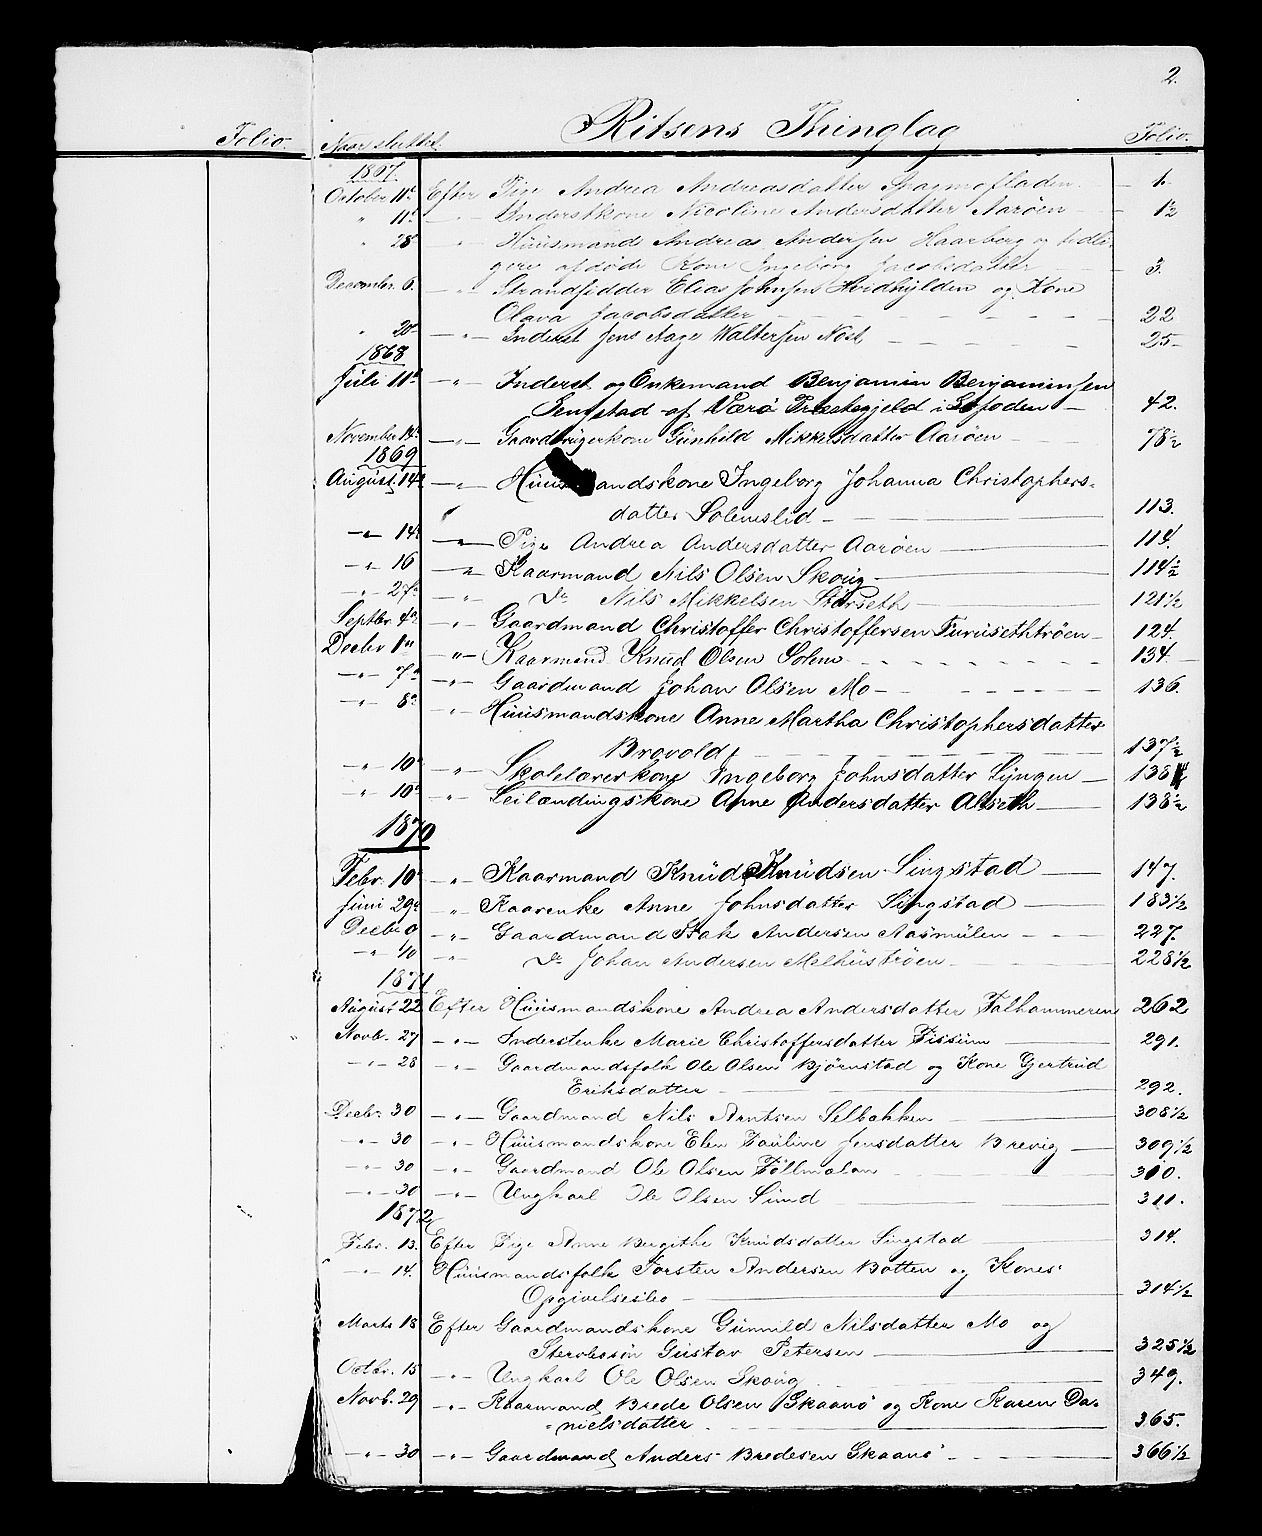 2.
Folio.
Naar sluttet.
Ritsens Thinglag
Folio.
1867.
October 11te Efter Pige Andrea Andreasdatter Spagmofladen. 1.
" 11te " Inderstkone Nicoline Andersdatter Aarøen 1½
" 28de " Huusmand Andreas Andersen Haarberg og tidli-
gere afdøde Kone Ingeborg Jacobsdatter 3.
December 6. " Strandsidder Elias Johnsen Hvidhylden og Kone
Olava Jacobsdatter 22
" 20 " Inderst Jens Aage Waltersen Næst 25
1868
Juli 11te " Inderst og Enkemand Benjamin Benjaminsen
Senstad af Værø Præstegjeld i Lofoden 42.
November 14de " Gaardbrugerkone Gunhild Mikkelsdatter Aarøen 78½
1869
August 14de " Huusmandskone Ingeborg Johanna Christophers-
datter Solemslid 113.
" 14de " Pige Andrea Andersdatter Aarøen 114.
" 16 " Kaarmand Nils Olsen Skoug 114½
" 27de " Do Nils Mikkelsen Storseth 121½
Septbr. 4de " Gaardmand Christoffer Christoffersen Furusethtrøen 124.
Decbr 1ste " Kaarmand Knud Olsen Solem 134.
" 7de " Gaardmand Johan Olsen Mo 136.
" 8de " Huusmandskone Anne Martha Christophersdatter
Brovold 137½
" 10de " Skolelærerkone Ingeborg Johnsdatter Lyngen 138
" 10de " Leilændingskone Anne Andersdatter Alseth 138½
1870
Febr. 10de " Kaarmand Knud Knudsen Singstad 147.
Juni 29de " Kaarenke Anne Johnsdatter Singstad 183½
Decbr " Gaardmand Isak Andersen Aasmulen 227.
" 10 " Do Johan Andersen Melhustrøen 228½
1871
August 22 Efter Huusmandskone Andrea Andersdatter Falhammeren 262
Novb. 27 " Inderstenke Marie Christoffersdatter Fissum 291.
" 28 " Gaardmandsfolk Ole Olsen Bjørnstad og Kone Gjertrud
Eriksdatter 292.
Decbr. 30 " Gaardmand Nils Arntsen Selbakken 308½
" 30 " Huusmandskone Elen Pauline Jensdatter Brevig 309½
" 30 " Gaardmand Ole Olsen Føllmalan 310.
" 30 " Ungkarl Ole Olsen Sund 311.
1872
Febr. 13. Efter Pige Anne Bergithe Knudsdatter Singstad 314.
" 14. Huusmandsfolk Torsten Andersen Botten og Kones
Opgivelsesbo 314½
Marts 18 Efter Gaardmandskone Gunnild Nilsdatter Mo og
Stervbosøn Gustav Petersen 325½
Octbr. 15 " Ungkarl Ole Olsen Skoug 349.
Novb. 29 " Kaarmand Brede Olsen Skaanø og Kone Karen Da-
nielsdatter 365.
" 30 " Gaardmand Anders Bredesen Skaanø 366½